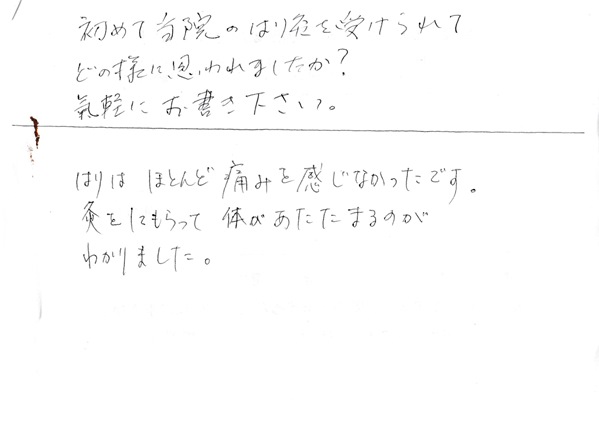 初めて当院のはり灸を受けられて
どの様に思われましたか?
気軽にお書き下さい。
はりは ほとんど 痛みを感じなかったです。
灸をしてもらって 体があたたまるのが
わかりました。